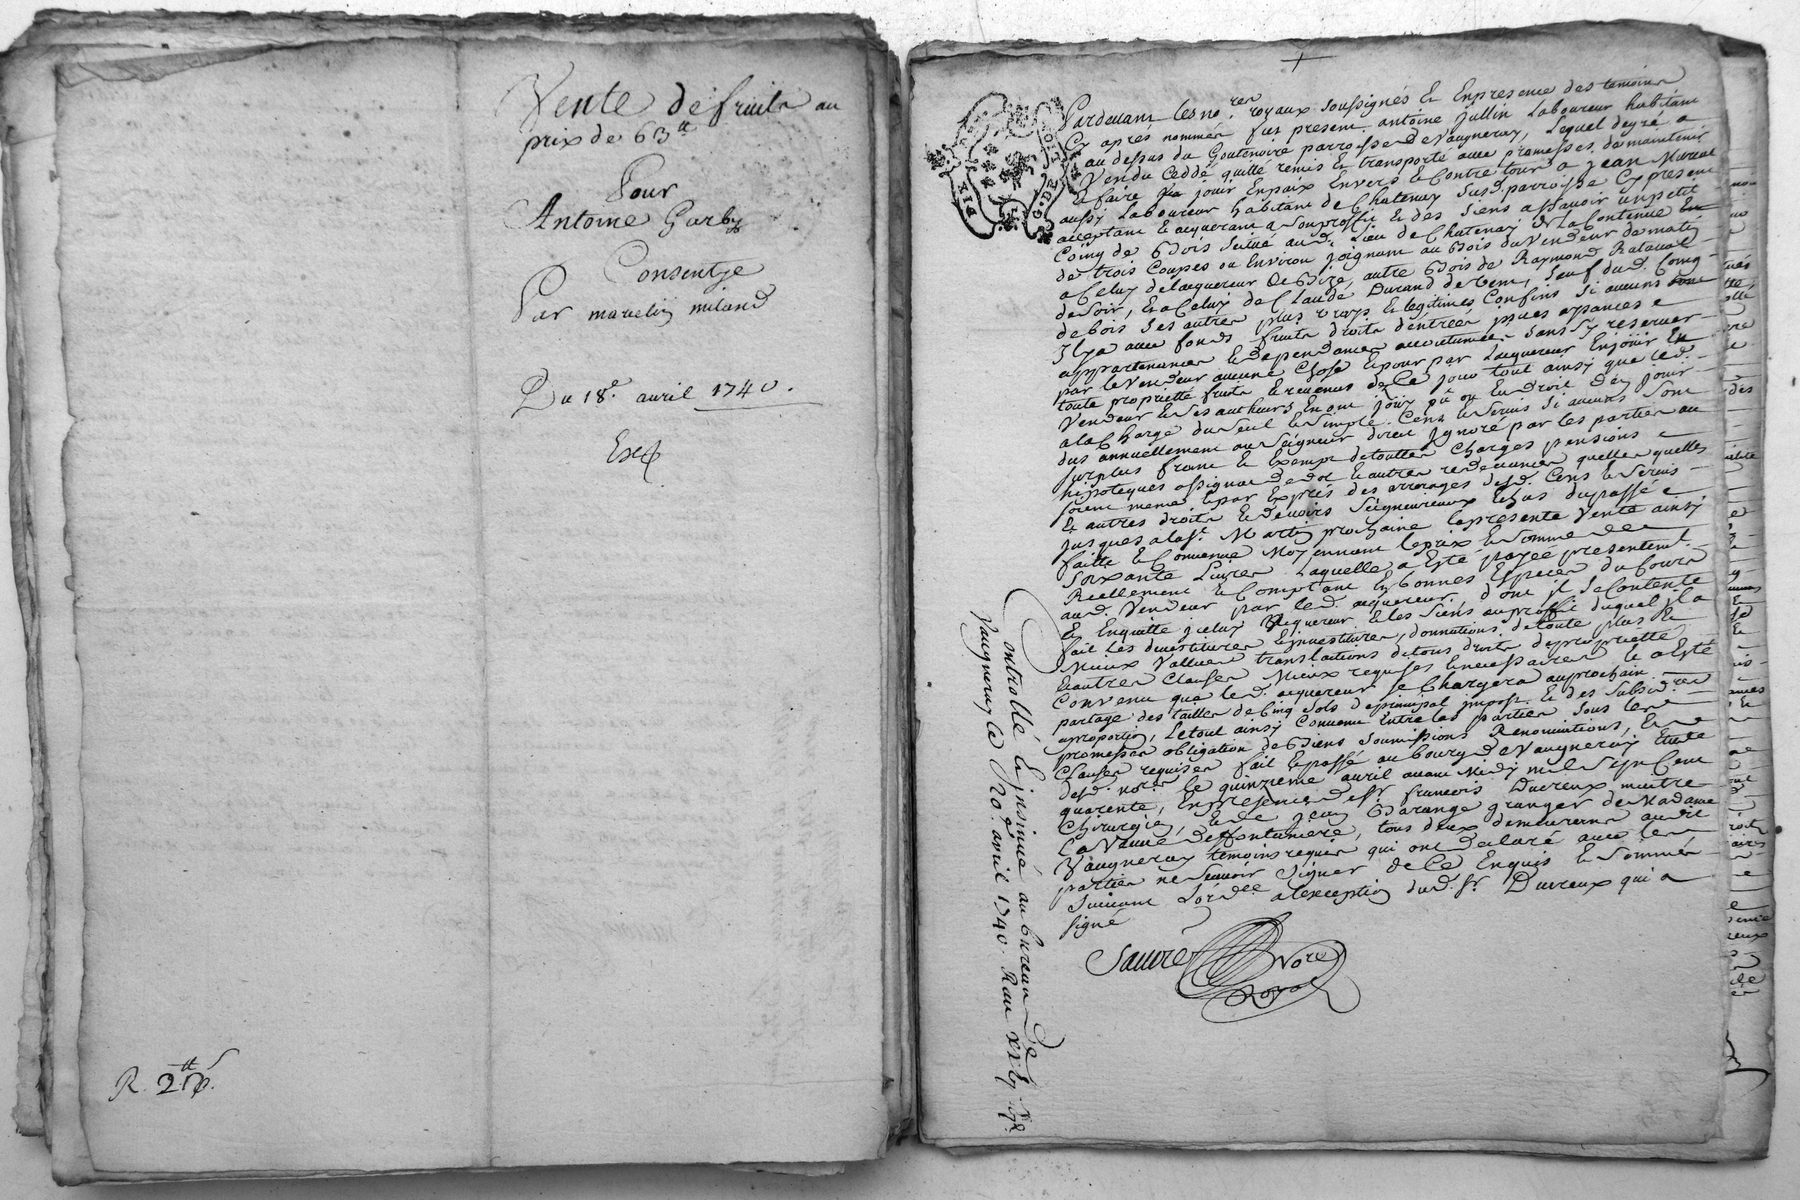 Vente de fruits au
prix de 63 tt
Pour
Antoine Garby
Consentye
Par marcelin miland
Du 18e. avril 1740.
Exp
R. 2 tt
Pardevant les nores. royaux soussignés Et Enpresence des temoins
Cy apres nommés fut present antoine jullin Laboureur habitant
au dessus du Goutenoire parroisse de Vaugneray, Lequel degré a
Vendu Ceddé quitté remis Et transporté avec promesses de maintenir
Et faire jouir Enpaix Envers Et Contre tous a jean
aussy Laboureur habitant de Chatenay susd. parroisse Cypresent
acceptant Et acquerant a Sonproffit Et des Siens assavoir un petit
Coing de Bois Scitué aud. Lieu de Chatenay De la Contenue
de trois Coupes ou Environ joignant au Bois du Vendeur de matin
a Celuy delacquereur de Bize, autre Bois de Raymond
de soir, Et a Celuy de Claude Durand de vent, Sauf dud. Coing
de bois ses autres plus vrays Et legitimes Confins Si aucuns
Il y a avec fonds fruits droits d'entrées jssues aysances
appartenances Et dependances accoutumées Sans Sy reserver
par le Vendeur aucune Chose Et pour par Lacquereur Enjouir En
toute proprietté fruits Et revenus dez Ce jour tout ainsy que led.
Vendeur Et Ses autheurs En ont jouy pû ou Eu droit d'En jouir
ala Charge du seul Et Simple Cens Et Servis Si aucuns Sont
dus annuellement au Seigneur direct Ignoré par les parties au
Surplus franc Et Exempt detouttes Charges pensions
hipoteques assignac de dot Et autres redevances quelles quelles
soient meme Et par Exprès des arrerages desd. Cens Et Servis
Et autres droits Et devoirs Seigneuriaux Echus dupassé
jusques ala St. Martin prochaine Lapresente Vente ainsy
faitte Et Convenue Moyennant Leprix Et Somme de
Soixante Livres Laquelle a Eté payée presentemt.
Reellement Et Comptant En bonnes Especes du Cours
aud. Vendeur par led. acquereur, dont jl Se Contente
Et Enquitte jceluy Acquereur Et les Siens auproffit duquel jl a
fait Les devestitures Et investitures, donnations detoute plus Et
Mieux Vallue translations detous droits deproprietté
Et autres Clauses Mieux requises Et necessaires Et a Eté
Convenu que led. acquereur Se Chargera auprochain
partage des tailles de Cinq Sols de principal impost Et des Subsid.res
aproportion, Letout ainsy Convenu Entre les parties Sous les
promesses obligation de Biens Soumissions Renonciations, Et
Clauses requises fait Et passé au bourg de Vaugneray Etude
desd. nores. Le quinzieme avril avant Midy mil Sept Cent
quarente, Enpresence de Sr. francois Ducreux maitre
Chirurgien, Et de jean Barange granger de Madame
La Veuve deffontaniere, tous deux demeurants audit
Vaugneray temoins requis qui ont declaré avec les
parties ne Scavoir Signer de Ce Enquis Et Sommés
Suivant Lordce. alexception dud. Sr. Ducreux qui a
signé
Nore
Royal
Controllé Et jnsinué au bureau de
Vaugneray le avril 1740. Reçu